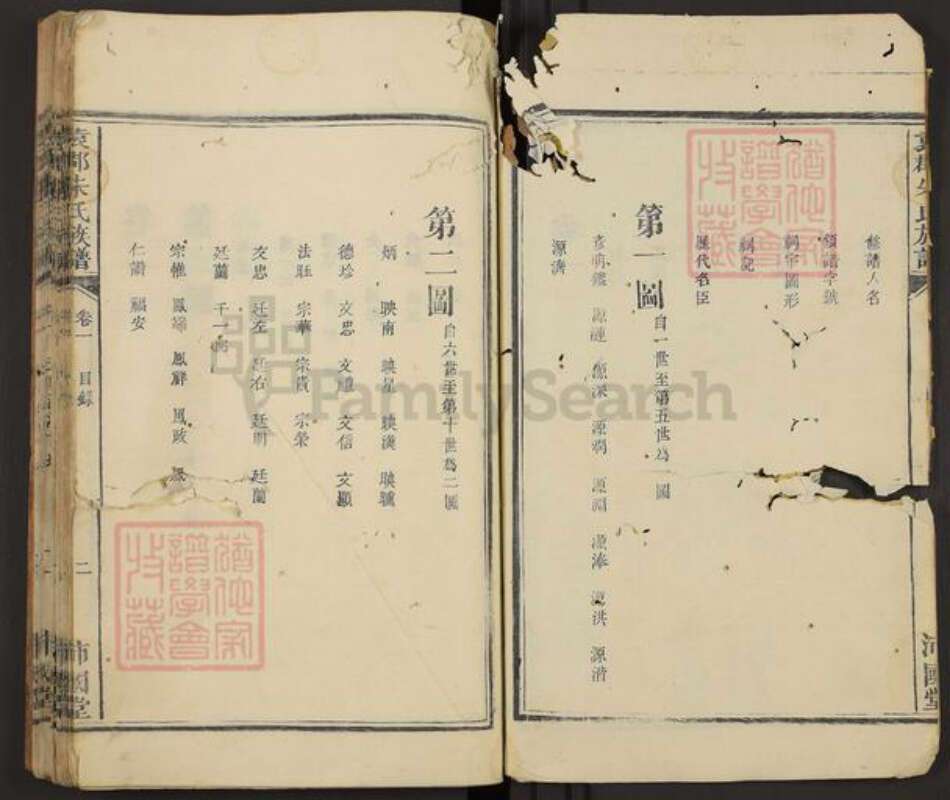 修譜人名
領譜字號
祠宇圖形
祠記
歷代名臣
第一圖 自一世至第五世為一圖
彥明鑑 源漣 源深 源澗 源淵 源泰 源洪 源清
源濟
袁郡朱氏族譜
沛國堂
第二圖 自六世至第十世為二圖
炳 映南 映星 映漢 映驥
德珍 文忠 文信 文顯
法旺 宗華 宗貴 宗榮
文忠 廷左 廷治 廷明 廷蘭
廷蘭 千一
宗惟 鳳翔 鳳祥 鳳
仁 福安
袁郡朱氏族譜 卷一 目錄 二 沛國堂
FamilySearch
猶他家譜學會收藏
猶他家譜學會收藏